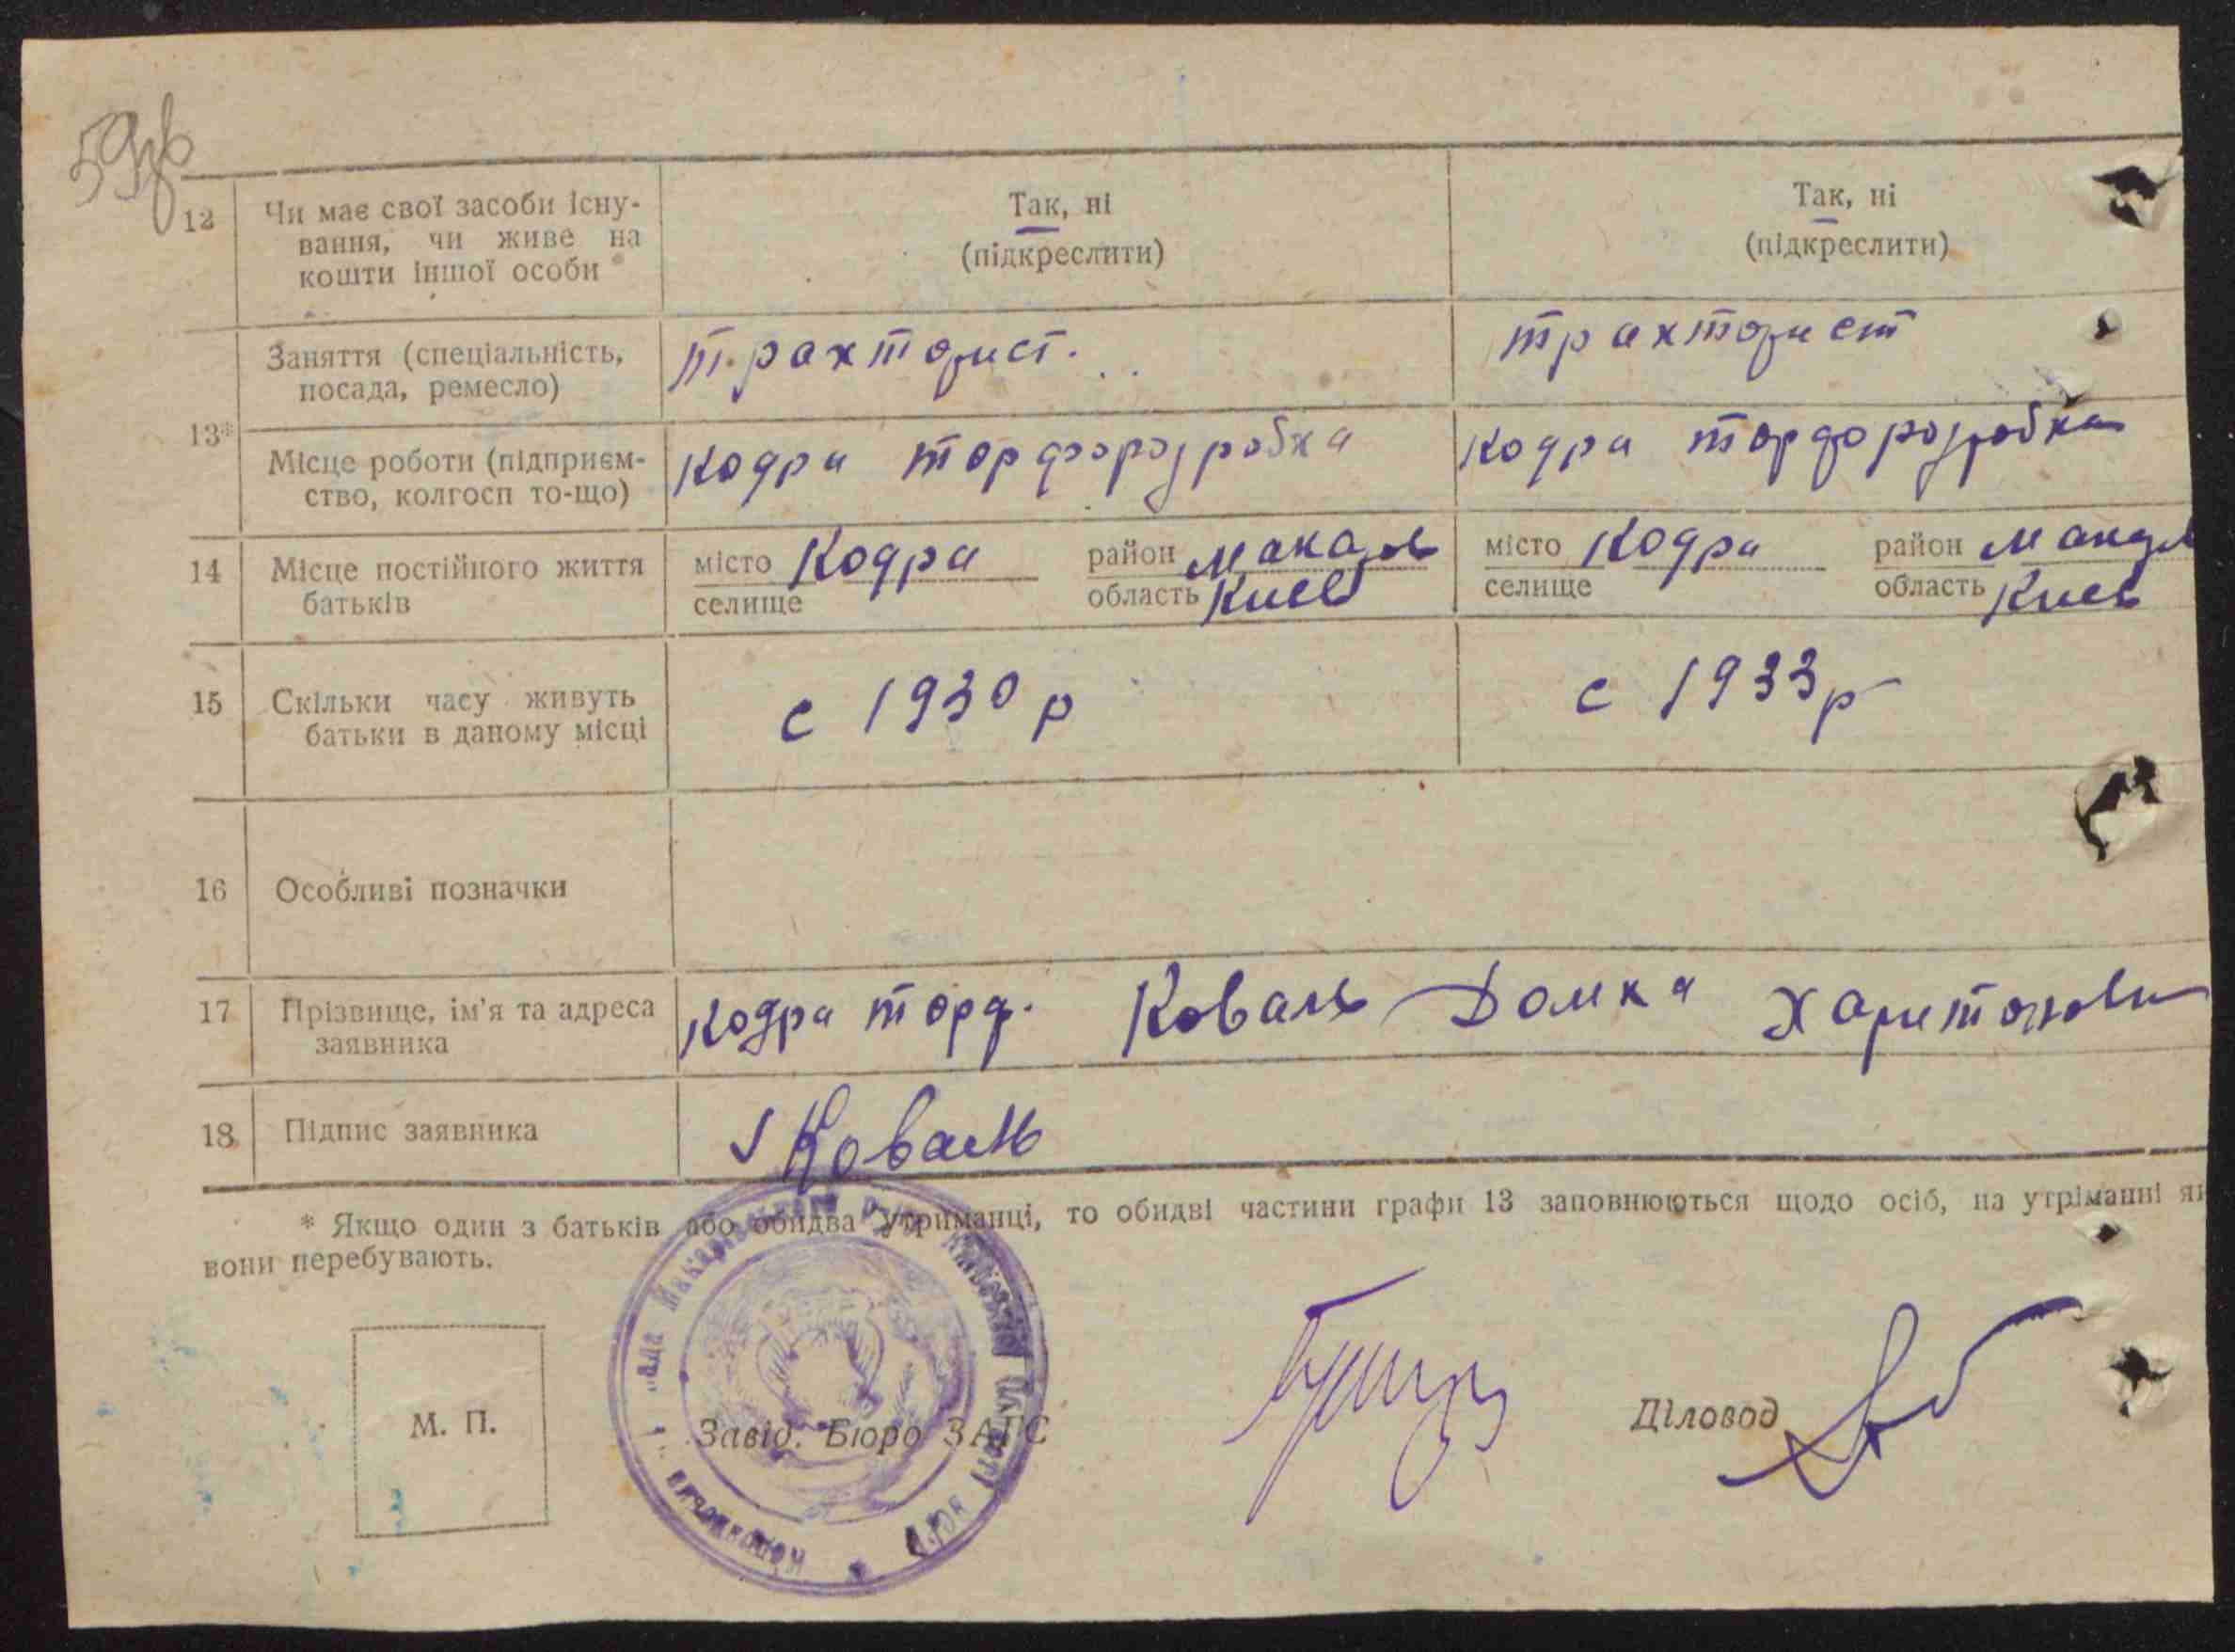 59зв
12 Чи має свої засоби існу-
вання, чи живе на
кошти іншої особи
Так, ні
(підкреслити)
Так, ні
(підкреслити)
13*
Заняття (спеціальність,
посада, ремесло)
трахторист.
трахторист
Місце роботи (підприєм-
ство, колгосп то-що)
Кодра торфорозробка
Кодра торфорозробка
14 Місце постійного життя
батьків
місто Кодра район Макаров
селище область Киев
місто Кодра район Макаров
селище область Киев
15 Скільки часу живуть
батьки в даному місці
с 1930 р
с 1933 р
16 Особливі позначки
17 Прізвище, ім'я та адреса
заявника
Кодра торф. Коваль Домка Харитонови
18 Підпис заявника
Коваль
* Якщо один з батьків або обидва утриманці, то обидві частини графи 13 заповнюються щодо осіб, на утріманні як
вони перебувають.
М. П.
Завід. Бюро ЗАГС
Діловод